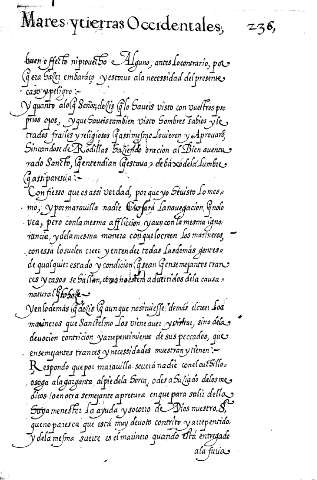 Mares y tierras Occidentales, 236,
buen efecto ni prouecho Alguno, antes lo contrario, por
q̃ era hazer embaraço y estoruo ala necesidad del presente
caso y peligro:
Y quanto alo q̃ Señor dezis q̃ lo haueis visto con vuestros pro
prios ojos, y que haueis tambien visto hombres sabios y le
trados frailes y religiosos q̃ assi mismo lo vieron y Aprouarõ
hincandose de Rodillas haziendo oracion al bien auentu
rado Sancto, q̃ entendian q̃ estaua debaxo dela lumbre
q̃ assi parescia:
Confiesso que es assi verdad, por que yo tt visto lo mes
mo, y por marauilla nadie la nauegacion, q̃ no lo
vea, pero con la mesma afflicion y aun con la mesma igno
rancia, y dela mesma manera con que lo creen los marineros
con essa lo suelen creer y entender todas las demas generos
de qual quier estado y condicion q̃ sean q̃ en semejantes tran
ces y casos se hallan, como no esten aduertidos dela causa
natural
Y en lo demas q̃ dezis q̃ aun que no siruiesse demas de ver los
marineros que Santelmo los viene auer y visitar, sino dela
deuocion contricion y arrepentimiento de sus peccados, que
en semejantes trances y necessidades muestran y tienen:
Respondo que por marauilla se vera nadie con el cuchillo
o soga ala garganta al pie dela horca, o des ahuziado delos me
dicos, o en otra semejante apretura en que para salir della
haya menester la ayuda y socorro de Dios nuestro Sor
que no paresca que está muy deuoto contrito y arrepentido
Y dela mesma suerte es el marinero quando está entregado
ala furia